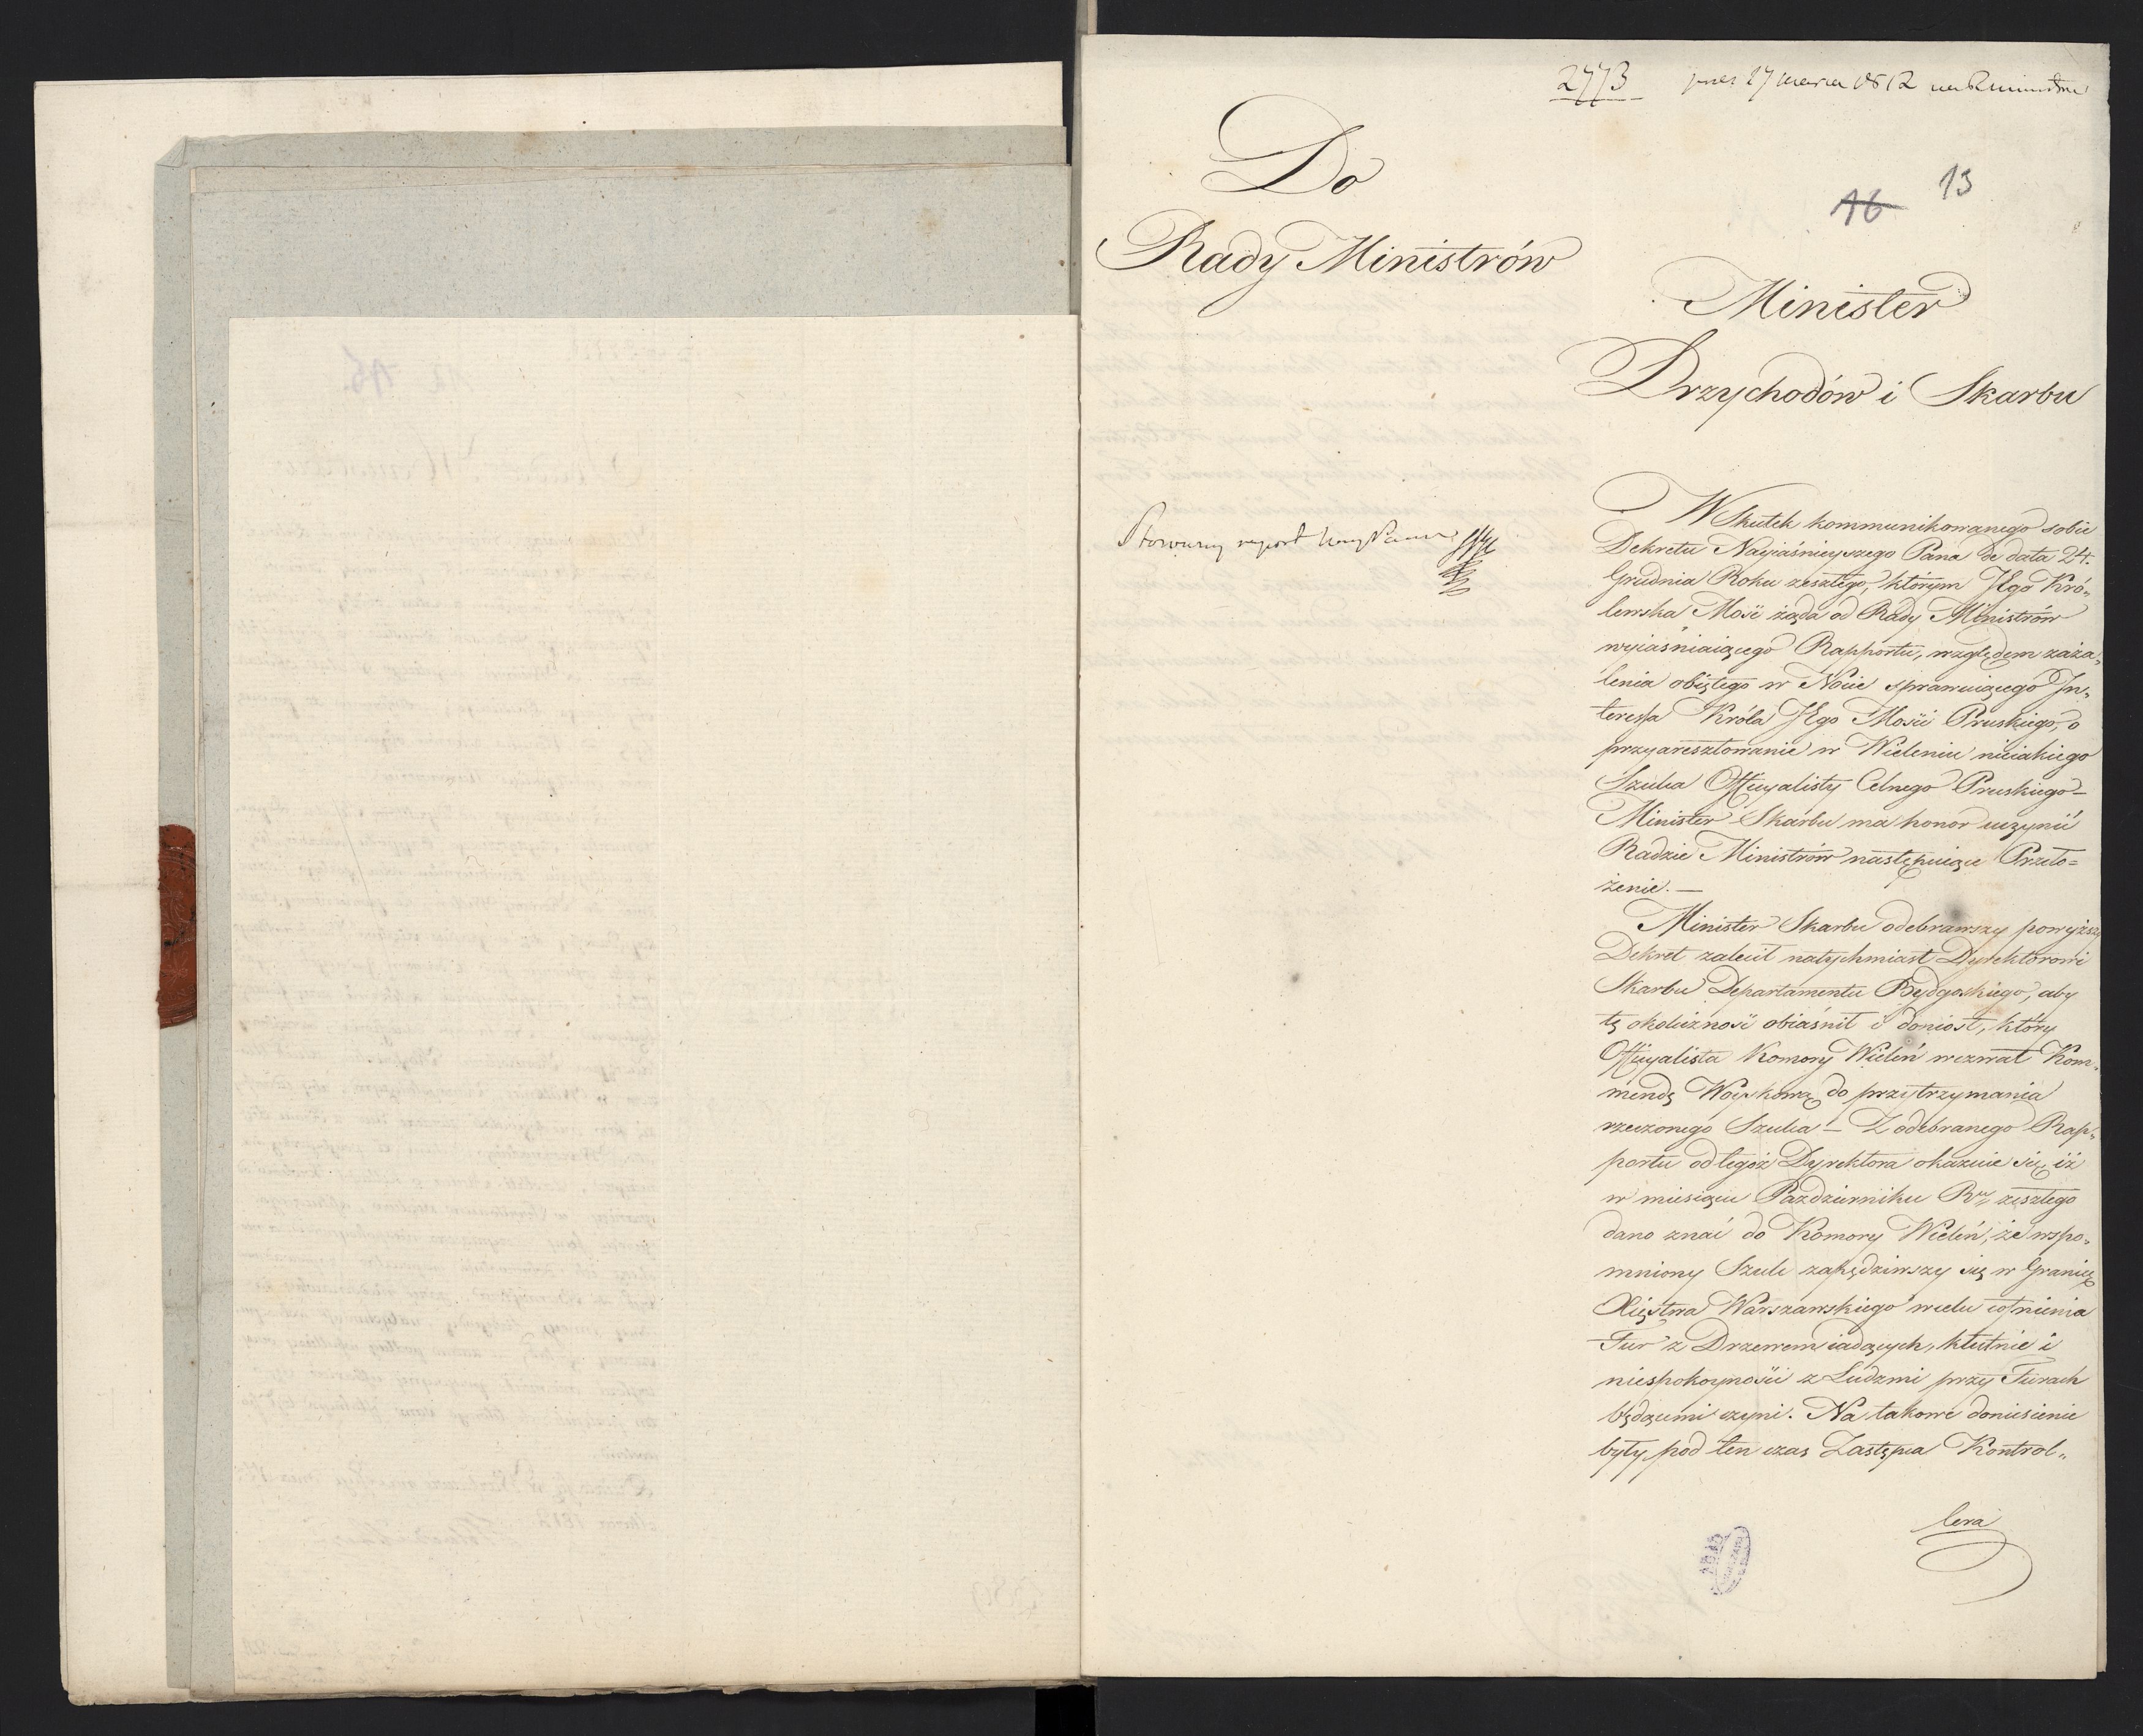 2773 17 marca 1812
16 13
Do
Rady Ministrów
Minister
Przychodów i Skarbu
Stosowny raport
W Skutek kommunikowanego sobie
Dekretu Nayiaśnieyszego Pana de data 24.
Grudnia Roku zeszłego, którym JEgo Kró„
lewska Mość żąda od Rady Ministrów
wyiaśniaiącego Rapportu, względem zaża„
lenia obiętego w Nocie sprawuiącego In„
teressa Króla JEgo Mości Pruskiego, o
przyaresztowanie w Wieleniu nieiakiego
Szulca Officyalisty Celnego Pruskiego –
Minister Skarbu ma honor uczynić
Radzie Ministrów następuiące Przeło=
żenie. —
Minister Skarbu odebrawszy powyższy
Dekret zalecił natychmiast Dyrektorowi
Skarbu Departamentu Bydgoskiego, aby
tę okoliczność obiaśnił i doniosł, który
Officyalista Komory Wieleń wezwał Kom„
mendę Woyskową do przytrzymania
rzeczonego Szulca – Z odebranego Rap„
portu od tegoż Dyrektora okazuie się, iż
w miesiącu Pazdzierniku Ru zeszłego
dano znać do Komory Wieleń, że wspo„
mniony Szulc zapędziwszy się w Granicę
Xięstwa Warszawskiego wielu cofnienia
Fur z Drzewem iadących, kłutnie i
niespokoyności z Ludzmi przy Furach
będącemi czyni. Na takowe doniesienie
były pod ten czas Zastępca Kontrol„
lera